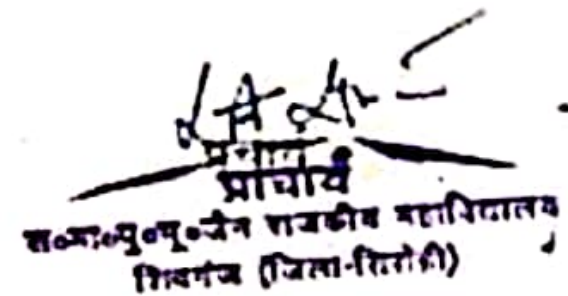 प्राचार्य
स०मा०पु०पू०जैन राजकीय महाविद्यालय
शिवगंज (जिला-सिरोही)